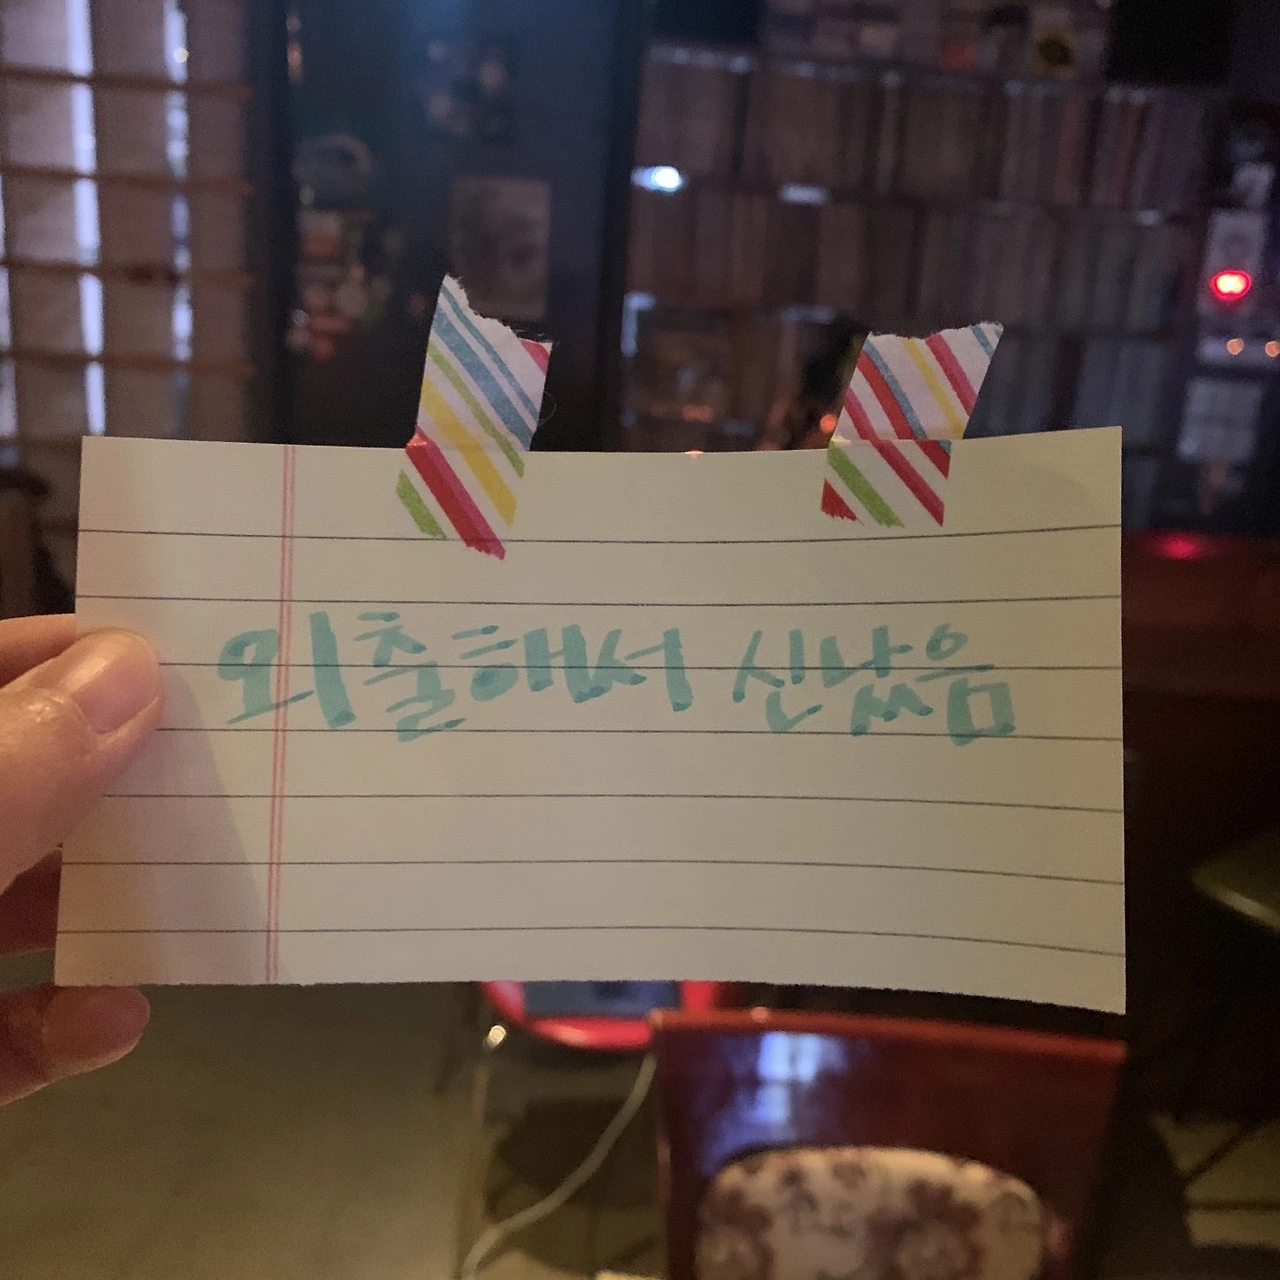 외출해서 신났음